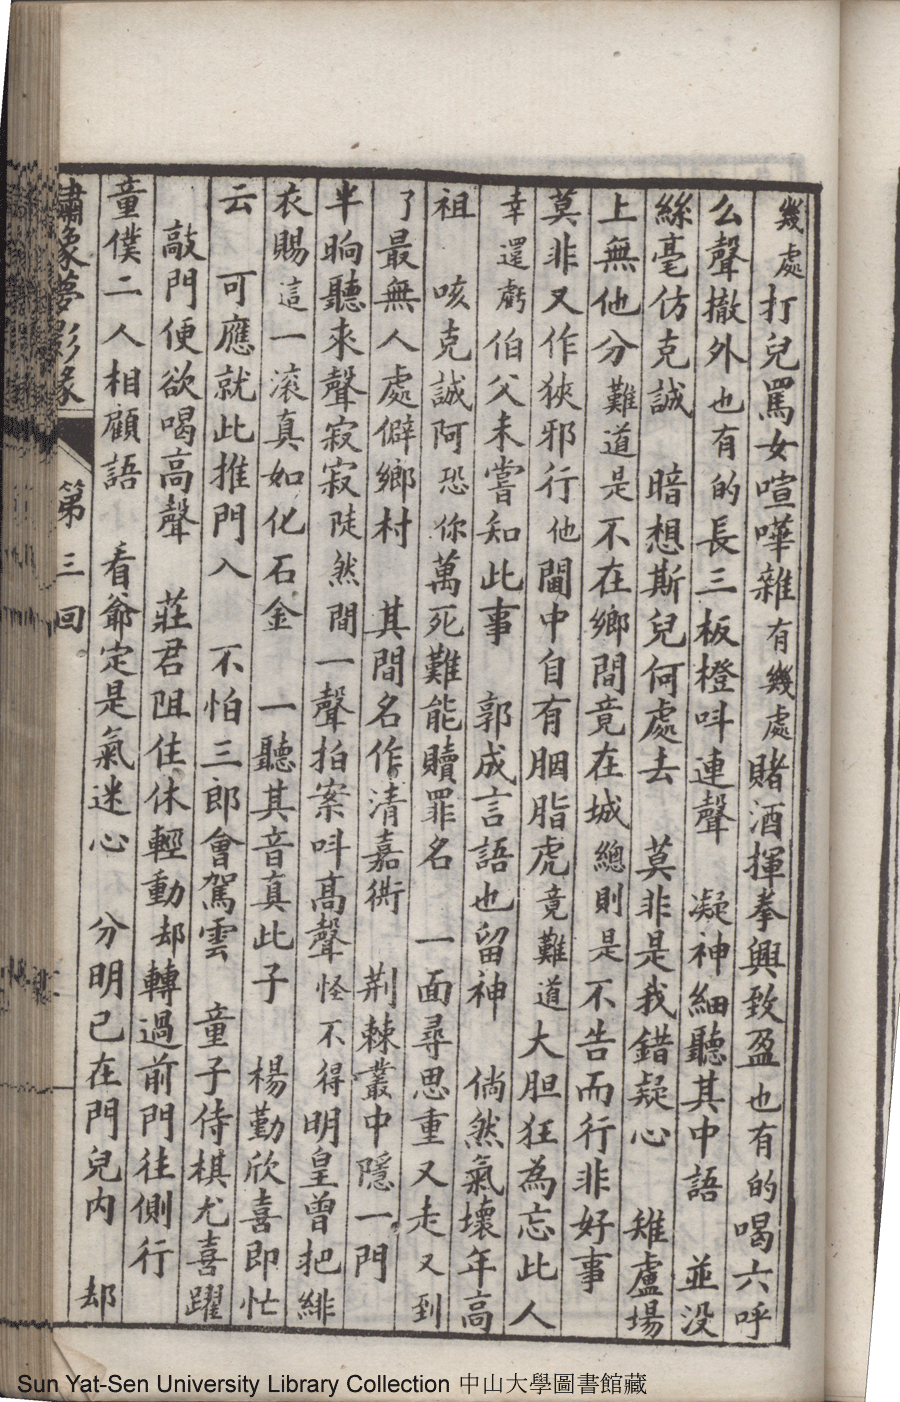 幾處打兒罵女喧嘩雜有幾處賭酒揮拳興致盈也有的喝六呼
么聲撤外也有的長三板橙呌連聲　凝神細聽其中語　並没
絲毫仿克誠　暗想斯兒何處去　莫非是我錯疑心　雉盧場
上無他分難道是不在鄉間竟在城總則是不告而行非好事
莫非又作狹邪行他閫中自有胭脂虎竟難道大胆狂為忘此人
幸還虧伯父未嘗知此事　郭成言語也留神　倘然氣壞年高
祖　咳克誠阿恐你萬死難能贖罪名　一面尋思重又走又到
了最無人處僻鄉村　其間名作清嘉衖　荆棘叢中隱一門
半晌聽來聲寂寂陡然間一聲拍案呌高聲怪不得明皇曾把緋
衣賜這一滚真如化石金　一聽其音真此子　楊勤欣喜即忙
云　可應就此推門入　不怕三郎會駕雲　童子侍棋尤喜躍
敲門便欲喝高聲　莊君阻住休輕動却轉過前門往側行
童僕二人相顧語　看爺定是氣迷心　分明已在門兒内　却
繡像夢影緣　第三回
Sun Yat-Sen University Library Collection 中山大學圖書館藏